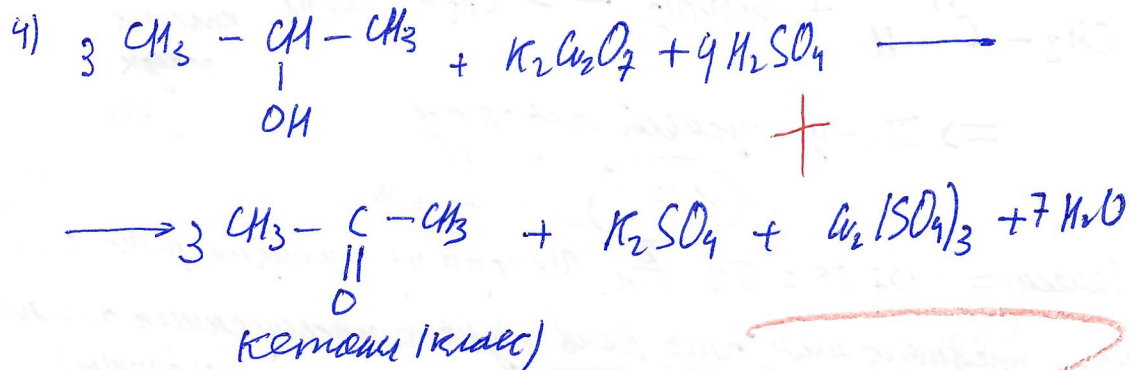 4) 3 CH₃ – CH – CH₃ + K₂Cr₂O₇ + 4 H₂SO₄ ⟶
|
OH
+
⟶ 3 CH₃ – C – CH₃ + K₂SO₄ + Cr₂(SO₄)₃ + 7 H₂O
||
O
кетоны (класс)